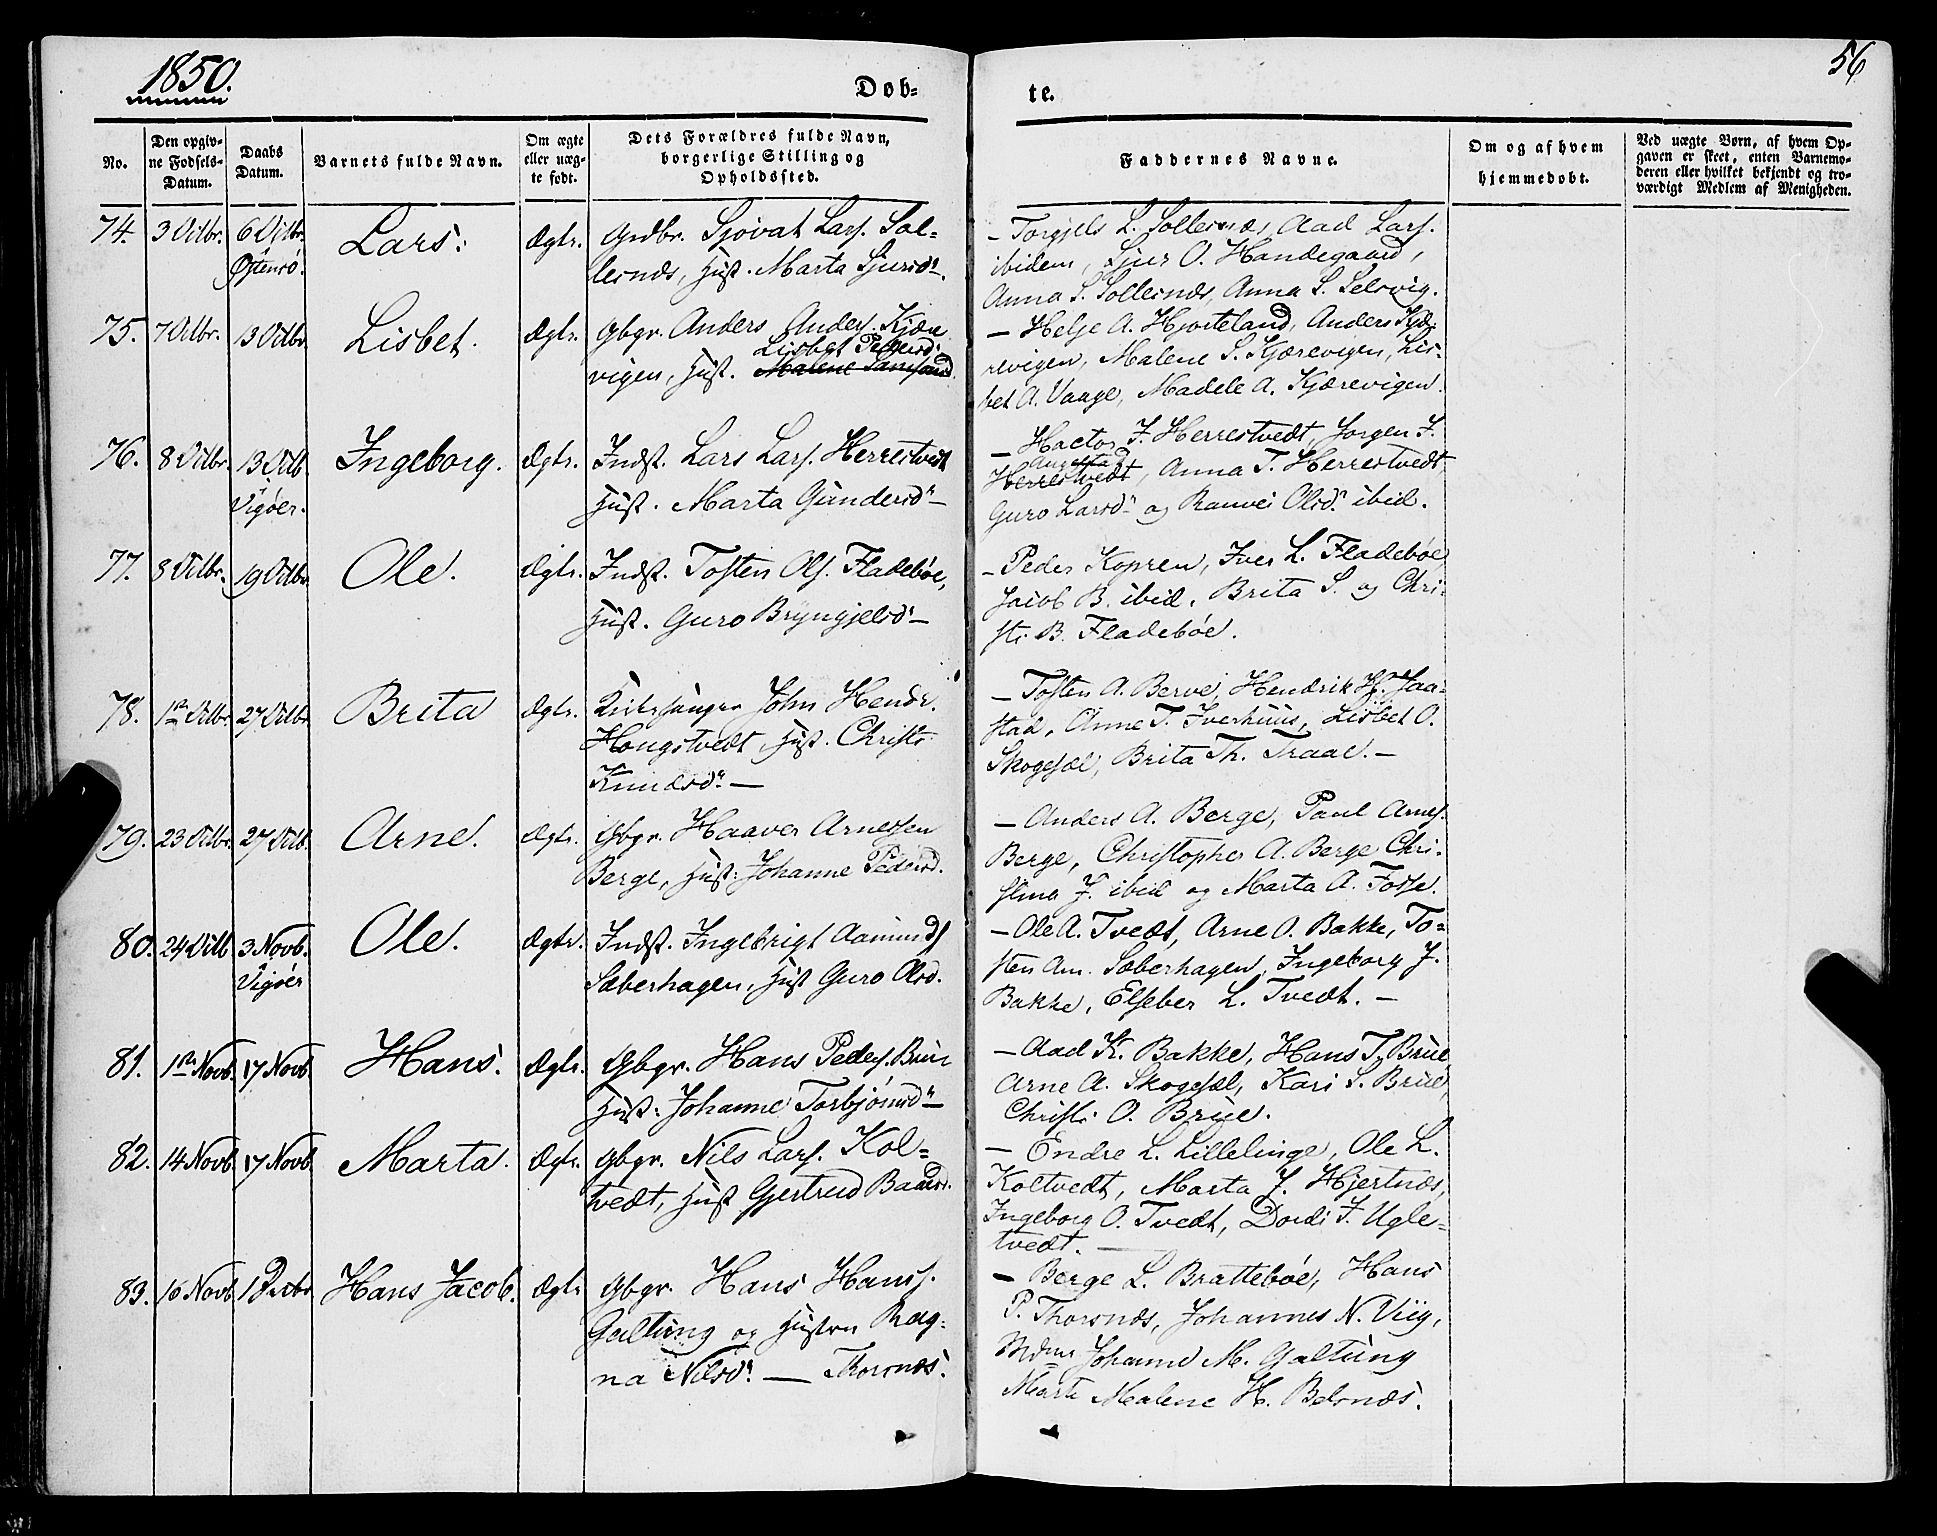 1850.
Døb-
te.
56
No.
Den opgiv-
ne Fødsels-
Datum.
Daabs
Datum.
Barnets fulde Navn.
Om ægte
eller uæg-
te født.
Dets Forældres fulde Navn,
borgerlige Stilling og
Opholdssted.
Faddernes Navne.
Om og af hvem
hjemmedøbt.
Ved uægte Børn, af hvem Op-
gaven er skeet, enten Barnemo-
deren eller hvilket bekjendt og tro-
værdigt Medlem af Menigheden.
74. 3 Octbr. 6 Octbr. Lars. Ægte.
Østensö.
Grdbr. Sjovat Lars. Sol-
lesnæs, Hust. Marta Sjursdr.
- Torgjels L. Sollesnæs, Aad Lars.
ibidem, Sjur O. Handegaard,
Anna S. Sollesnæs, Anna S. Selsvig.
75. 7 Octbr. 13 Octbr. Lisbet. Ægte.
Gbgr. Anders Anders. Kjære
Lisbet Pedersd.
vigen, Hust. Malene Samsond.
- Helje A. Hjorteland, Anders Kjæ-
revigen, Malene S. Kjærevigen, Lis-
bet A. Vaage, Madele A. Kjærevigen.
76. 8 Octbr. 13 Octb. Ingeborg. Ægte.
Vigöer.
Indst. Lars Lars. Herrestvedt
Hust. Marta Gundersdr -
- Hactor J. Herrestvedt, Jorgen J.
Augestad
Herrestvedt, Anna T. Herrestvedt
Guro Larsdr og Ranvei Olsdr. ibid.
77. 8 Octbr. 19 Octbr. Ole. Ægte.
Indst. Tosten Ols. Fladebøe,
Hust. Guro Bryngjelsdr -
- Peder Kopren, Iver L. Fladebøe
Jacob B. ibid. Brita S. og Chri-
sti B. Fladebøe.
78. 1ste Octbr. 27 Octbr. Brita Ægte.
Kirkesanger John Hendr.
Hougstvedt, Hust. Christi
Knudsdr. -
- Tosten A. Berve, Hendrik H. Jaa-
stad, Anne T. Iverhuus, Lisbet O.
Skogesæl, Brita Th. Traae. -
79. 23 Octbr. 27 Octb. Arne. Ægte.
Gbgr. Haaver Arnessen
Berge, Hust: Johanne Pedersd.
- Anders A. Berge, Paul Arnes.
Berge, Christopher A. Berge Chri-
stina J. ibid og Marta A. Fosse.
80. 24 Octb 3 Novb. Ole. Ægte.
Vigöer
Indst. Ingebrigt Aamunds
Sæberhagen, Hust Guro Olsd.
- Ole A. Tvedt, Arne O. Bakke, To-
sten Am. Sæberhagen, Ingeborg J.
Bakke, Elseber L. Tvedt. -
81. 1ste Novb. 17 Novb. Hans. Ægte.
Gbgr. Hans Peders. Brue
Hust: Johanne Torbjörnsdr -
- Aad K. Bakke, Hans T. Brue
Arne A. Skogesæl, Kari S. Brue,
Christi O. Brue.
82. 14 Novb. 17 Novb. Marta. Ægte.
Gbgr. Nils Lars. Kol-
tvedt, Hust Gjertrud Baarsd.
- Endre L. Lillelinge, Ole L.
Koltvedt, Marta J. Hjertnæs,
Ingeborg O. Tvedt, Dordi J. Ugle-
tvedt. -
83. 16 Novb 1 Decbr Hans Jacob. Ægte
Gbgr. Hans Hanss.
Galtung og Hustru Rag-
na Nilsdr. - Thorsnæs.
- Berge L. Brattebøe, Hans
P. Thorsnæs, Johannes N. Viig,
Mdme Johanne M. Galtung
Marte Malene H. Belsnæs.